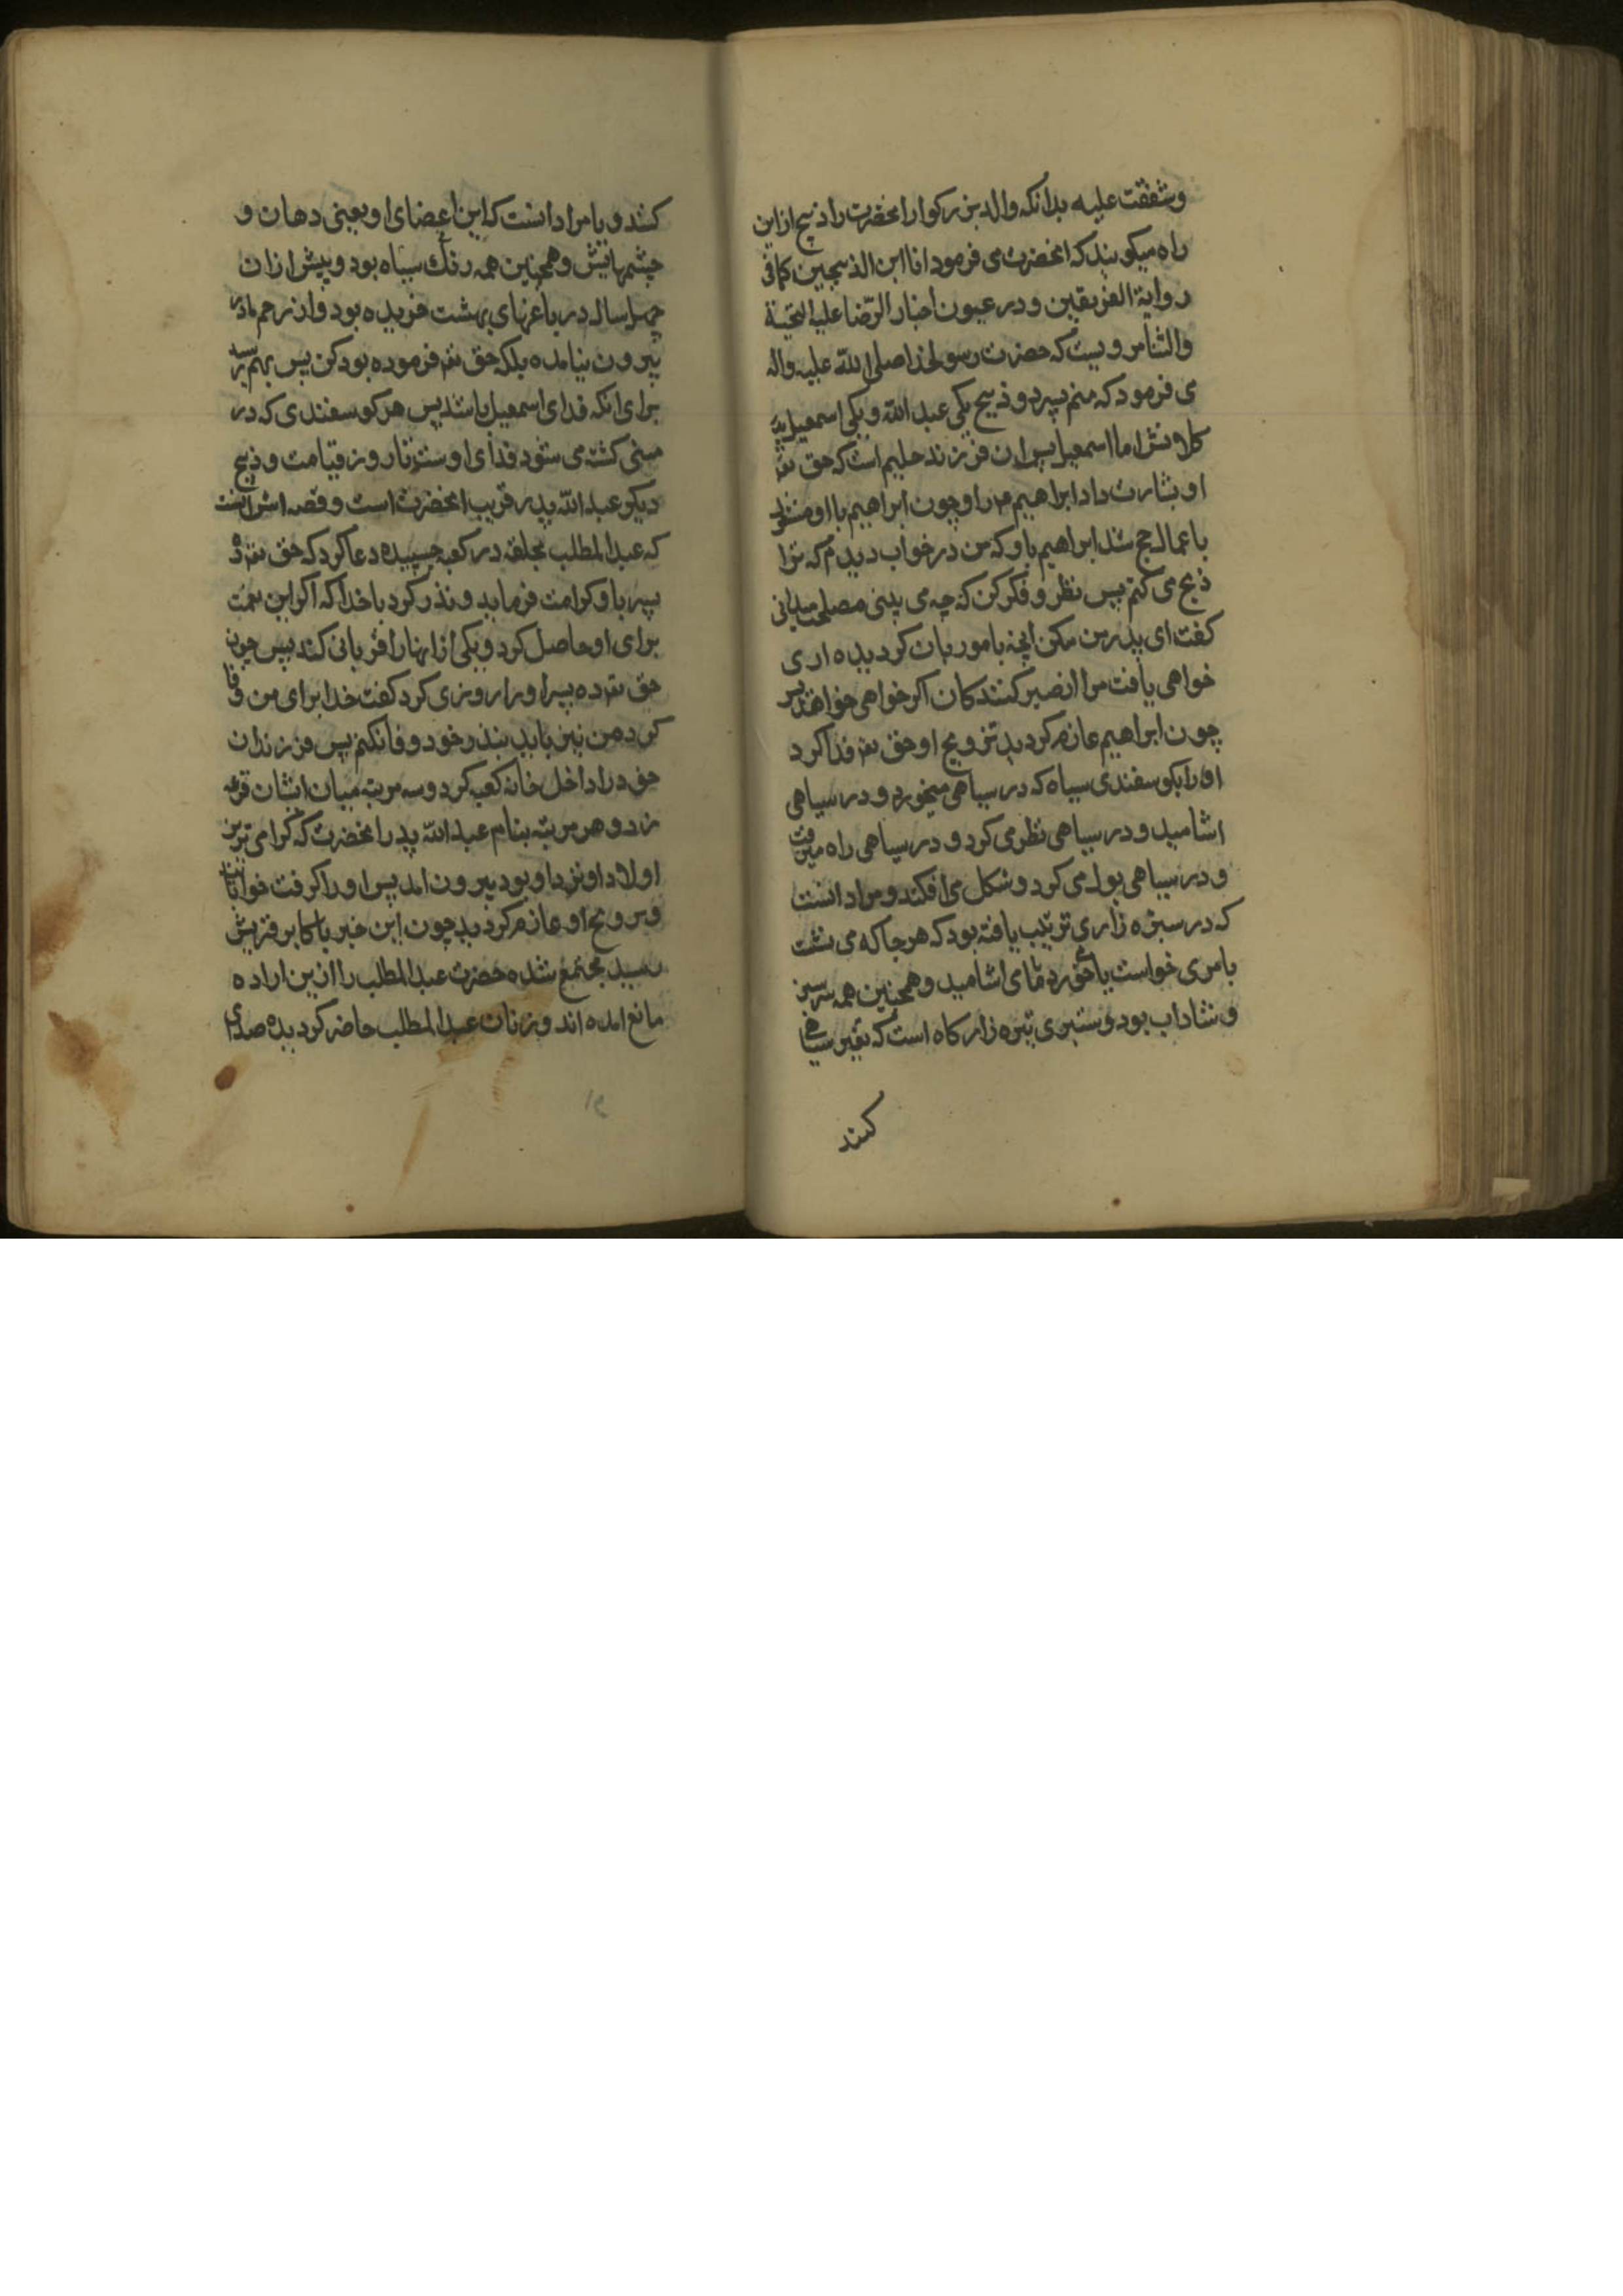 وشفقت علیه بدانکه والد بزرکوار انحضرت را ذبیح ازاین
راه میکویند که انحضرت می فرمود انا ابن الذبیحین کما فی
روایة الفریقین و در عیون اخبار الرّضا علیه التحیة
والثنا مرویست که حضرت رسولخدا صلی اللّه علیه واله
می فرمود که منم پسر دو ذبیح یکی عبد اللّه و یکی اسمعیل
اما اسمعیل پس ان فرزند حلیم است که حق تع
او بشارت داد ابراهیم م را و چون ابراهیم با او
باعمال حج شد ابراهیم باو که من در خواب دیدم که ترا
ذبح می کنم پس نظر و فکر کن که چه می بینی مصلحت
کفت ای پدر من بکن انچه بامور بان کردیده اری
خواهی یافت مرا از صبر کنندکان اکر خواهی
چون ابراهیم عازم کردید او حق تع فدا کرد
او را بکوسفندی سیاه که در سیاهی میخورد و در سیاهی
اشامید و در سیاهی نظر می کرد و در سیاهی راه میرفت
و در سیاهی بول می کرد و شکل می افکند و مراد انست
که در سبزه زاری تربیت یافته بود که هر جا که می نشت
یا می خواست یا می خورد یا می اشامید و همچنین همه سر سبز
و شاداب بود و سبزی تیره زار کاه است که تعبیر
کنند
کنند و یا مراد انست که این اعضای او یعنی دهان و
چشمهایش و همچنین همه رنک سیاه بود و پیش ازان
چهل سال در باغهای بهشت چریده بود و از رحم مادر
بیرون نیامده بلکه حق تع فرموده بود کن پس بهم رسید
برای انکه فدای اسمعیل باشد پس هر کوسفندی که در
منی کشته می شود فدای اوست تا روز قیامت و ذبیح
دیکر عبد اللّه پدر قریب انحضرت است و قصه اش اینست
که عبد المطلب بحلقه در کعبه چسپیده دعا کرد که حق تع ده
پسر باو کرامت فرماید و نذر کرد با خدا که اکر این نعمت
برای او حاصل کرد و یکی از انها را قربانی کند پس چون
حق تع ده پسر او را روزی کرد کفت خدا برای من وفا
کرد من نیز باید بنذر خود وفا نکنم پس فرزندان
خود را داخل خانه کعبه کرد و سه مرتبه میان ایشان قرعه
زد و هر مرتبه بنام عبد اللّه پدر انحضرت که کرامی ترین
اولاد او نزد او بود بیرون امد پس او را کرفت
و بر ذبح او عازم کردید چون این خبر باکابر قریش
رسید مجتمع شده حضرت عبد المطلب را ازین اراده
مانع امده اند و زنان عبد المطلب حاضر کردیده صدای